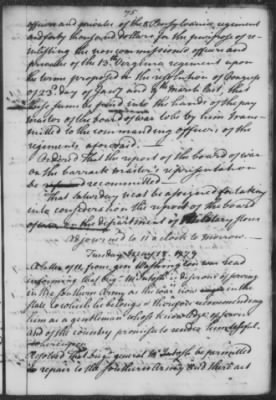 75
officers and privates of the 8 Pensylvania regiment
and forty thousand dollars for the purpose of re-
inlisting the non commissioned officers and
privates of the 13th Virginia regiment upon
the terms proposed in the resolution of Congress
of 23d day of Jany and 9th March last, that
these sums be paid into the hands of the pay
master of the board of war to be by him trans-
mitted to the commanding officers of the
regiments aforesaid.
Ordered That the report of the board of war
on the barrack master's representation
be recommitted
That saturday next be assigned for taking
into consideration the report of the board
of war on the department of
Adjourned to 11 o Clock to morrow
Tuesday May 18. 1779
A letter of 11, from gen Washington was read
informing that brig McIntosh is desirous of serving
in the southern Army as the war is now in the
state to which he belongs & therefore recommending
him as a gentleman whose knowledge of
and of the country promises to render him useful.
Whereupon
Resolved That brig general McIntosh be permitted
to repair to the Southern Army and there act